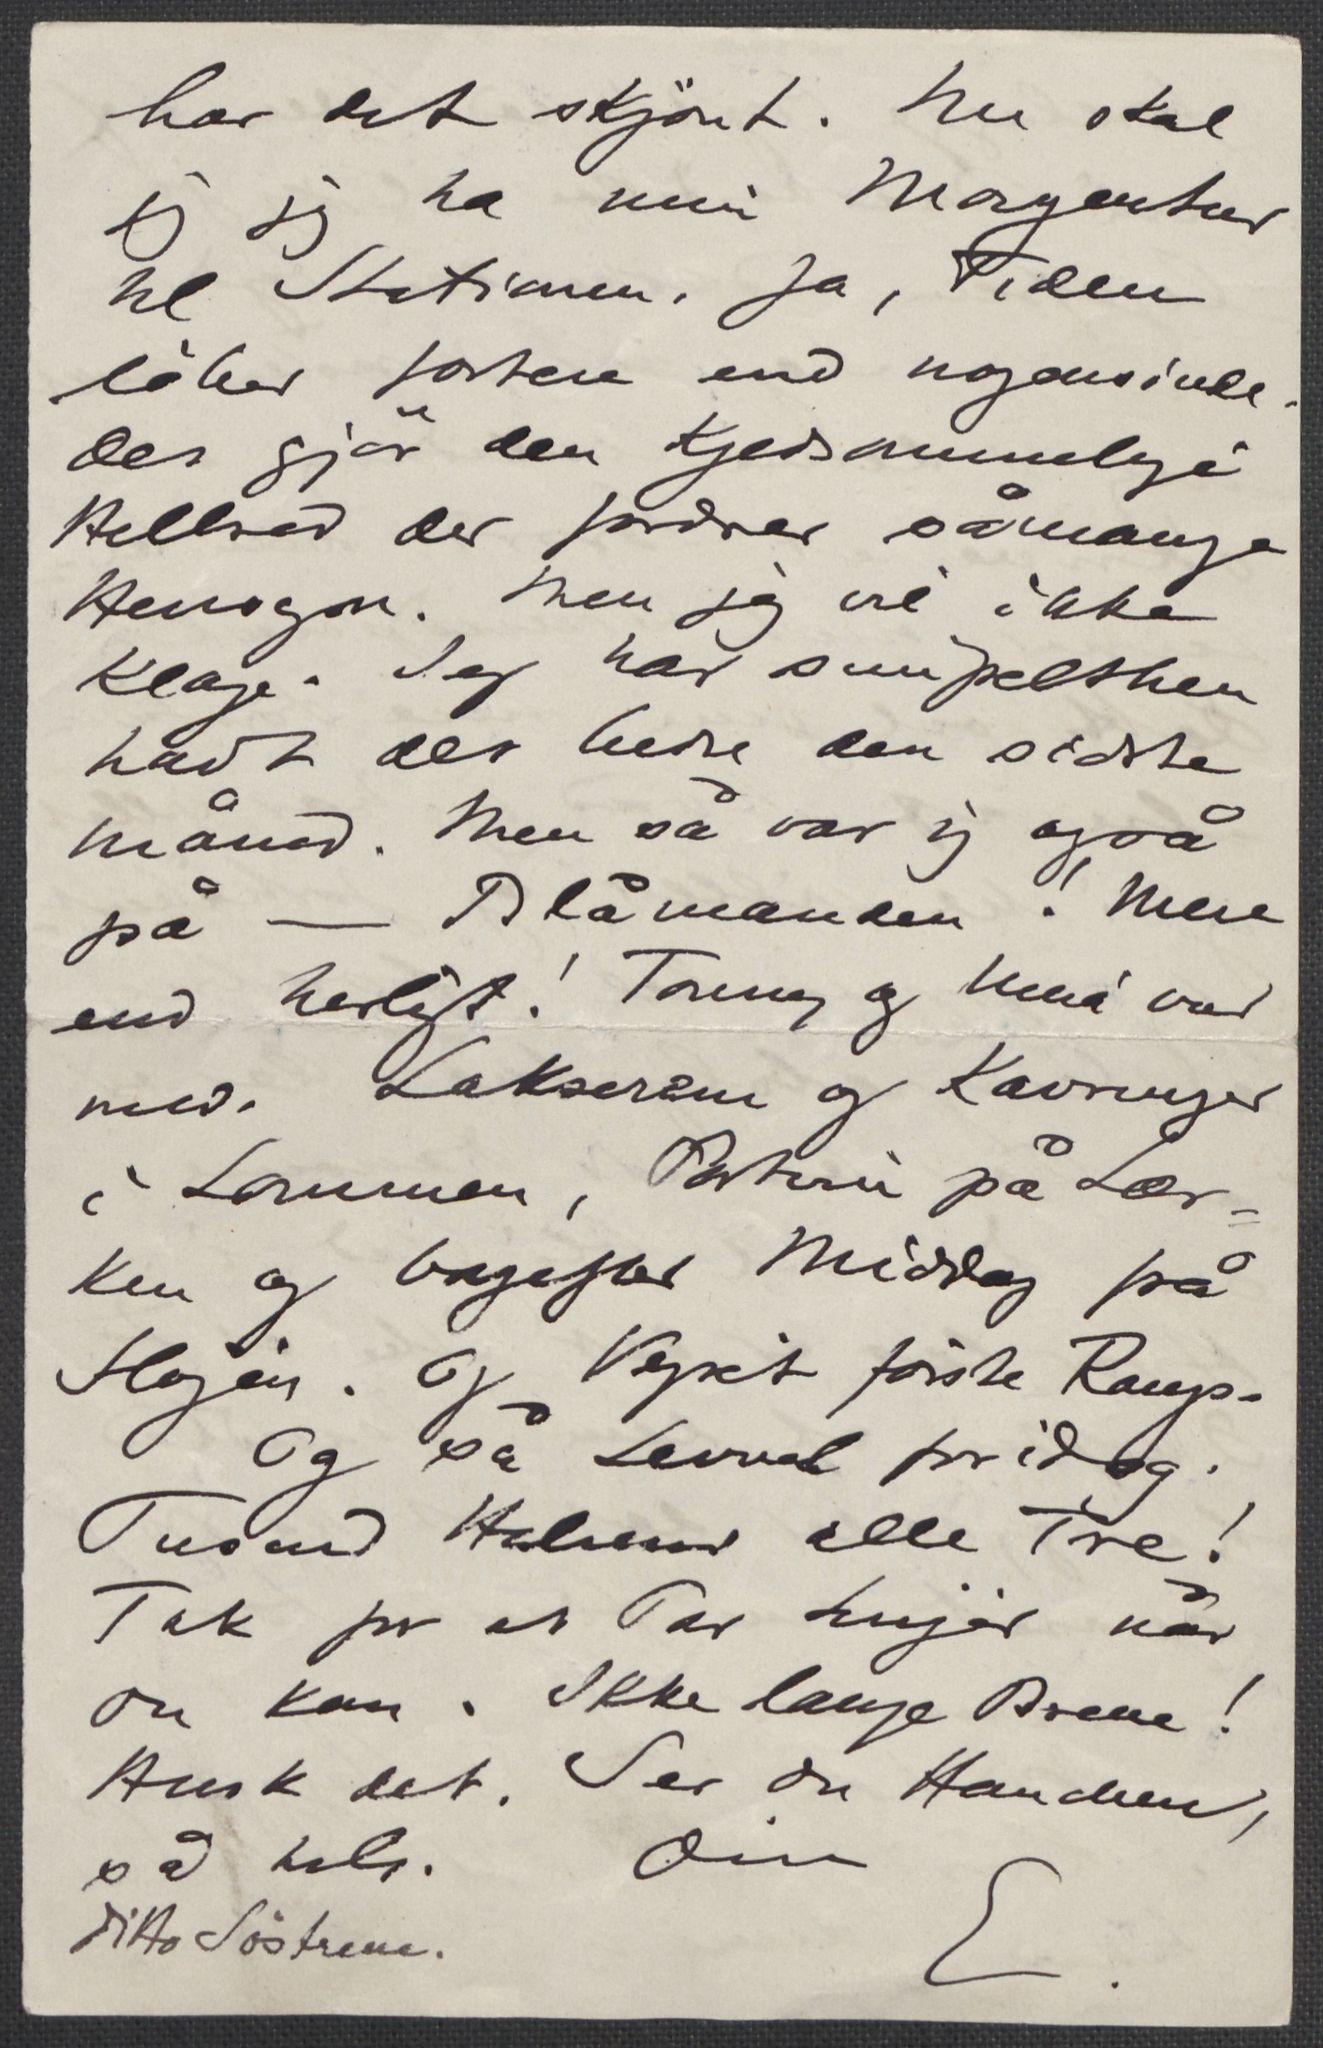 har det skjönt. Nu skal
jeg jeg ha min Morgentur
til Stationen. Ja, Tiden
löber fortere end nogensinde.
Det gjör den kjedsommelige
Helbred der fordrer såmange
Hensyn. Men jeg vil ikke
klage. Jeg har simpelthen
havt det bedre den sidste
måned. Men så var jeg også
på — Blåmanden! Mere
end herligt! Tonny og Nina var
med. Lakserim og Kavringer
i Lommen, Portvin på Lær-
ken og bagefter Middag på
Fløjen. Og Vejret förste Rangs.
Og så Levvel for idag.
Tusind Hilsener alle Tre!
Tak for at Par Linjer når
du kan. Ikke lange Breve!
Husk det. Ser du Hanchen,
så hils. Din
E.
Ditto Söstrene.